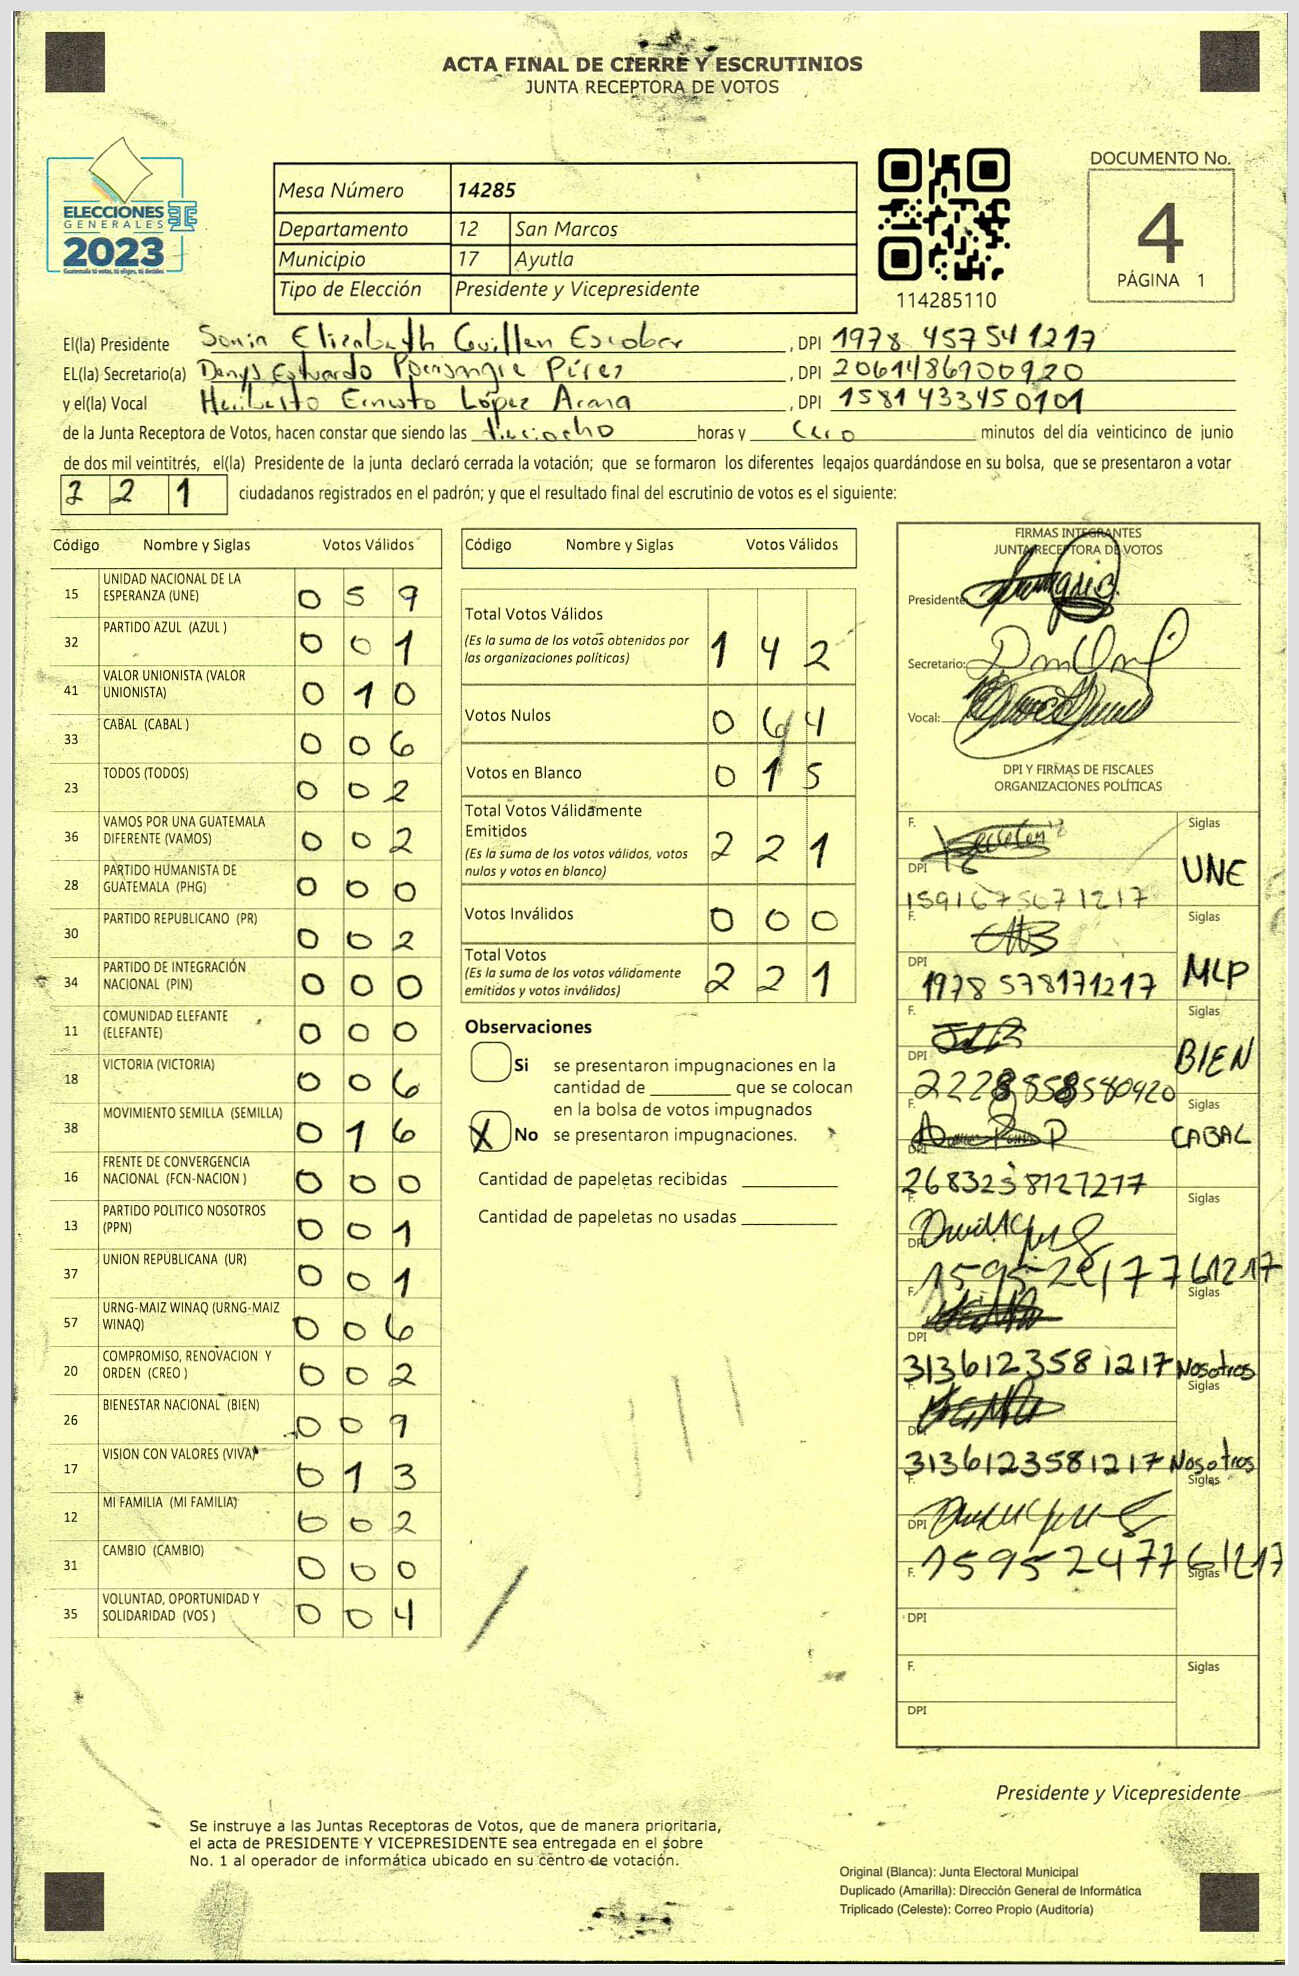 ACTA FINAL DE CIERRE Y ESCRUTINIOS
JUNTA RECEPTORA DE VOTOS
ELECCIONES
GENERALES
2023
Guatemala tú votas, tú eliges, tú decides
Mesa Número 14285
Departamento 12 San Marcos
Municipio 17 Ayutla
Tipo de Elección Presidente y Vicepresidente
114285110
DOCUMENTO No.
4
PÁGINA 1
El(la) Presidente Sonia Elizabeth Guillen Escobar, DPI 1978 45754 1217
EL(la) Secretario(a) Denys Estuardo Pérez, DPI 2061486900920
y el(la) Vocal Heriberto Ernesto López Arana, DPI 1581433450101
de la Junta Receptora de Votos, hacen constar que siendo las dieciocho horas y cero minutos del día veinticinco de junio
de dos mil veintitrés, el(la) Presidente de la junta declaró cerrada la votación; que se formaron los diferentes legajos guardándose en su bolsa, que se presentaron a votar
2 2 1 ciudadanos registrados en el padrón; y que el resultado final del escrutinio de votos es el siguiente:
Código Nombre y Siglas Votos Válidos
15 UNIDAD NACIONAL DE LA ESPERANZA (UNE) 0 5 9
32 PARTIDO AZUL (AZUL ) 0 0 1
41 VALOR UNIONISTA (VALOR UNIONISTA) 0 1 0
33 CABAL (CABAL ) 0 0 6
23 TODOS (TODOS) 0 0 2
36 VAMOS POR UNA GUATEMALA DIFERENTE (VAMOS) 0 0 2
28 PARTIDO HUMANISTA DE GUATEMALA (PHG) 0 0 0
30 PARTIDO REPUBLICANO (PR) 0 0 2
34 PARTIDO DE INTEGRACIÓN NACIONAL (PIN) 0 0 0
11 COMUNIDAD ELEFANTE (ELEFANTE) 0 0 0
18 VICTORIA (VICTORIA) 0 0 6
38 MOVIMIENTO SEMILLA (SEMILLA) 0 1 6
16 FRENTE DE CONVERGENCIA NACIONAL (FCN-NACION ) 0 0 0
13 PARTIDO POLITICO NOSOTROS (PPN) 0 0 1
37 UNION REPUBLICANA (UR) 0 0 1
57 URNG-MAIZ WINAQ (URNG-MAIZ WINAQ) 0 0 6
20 COMPROMISO, RENOVACION Y ORDEN (CREO ) 0 0 2
26 BIENESTAR NACIONAL (BIEN) 0 0 9
17 VISION CON VALORES (VIVA) 0 1 3
12 MI FAMILIA (MI FAMILIA) 0 0 2
31 CAMBIO (CAMBIO) 0 0 0
35 VOLUNTAD, OPORTUNIDAD Y SOLIDARIDAD (VOS ) 0 0 4
Código Nombre y Siglas Votos Válidos
Total Votos Válidos 1 4 2
(Es la suma de los votos obtenidos por
las organizaciones políticas)
Votos Nulos 0 6 4
Votos en Blanco 0 1 5
Total Votos Válidamente
Emitidos 2 2 1
(Es la suma de los votos válidos, votos
nulos y votos en blanco)
Votos Inválidos 0 0 0
Total Votos 2 2 1
(Es la suma de los votos válidamente
emitidos y votos inválidos)
Observaciones
Si se presentaron impugnaciones en la
cantidad de ________ que se colocan
en la bolsa de votos impugnados
X No se presentaron impugnaciones.
Cantidad de papeletas recibidas
Cantidad de papeletas no usadas
FIRMAS INTEGRANTES
JUNTA RECEPTORA DE VOTOS
Presidente:
Secretario:
Vocal:
DPI Y FIRMAS DE FISCALES
ORGANIZACIONES POLÍTICAS
F. Siglas
DPI UNE
F. Siglas
DPI 1978 578171217 MLP
F. Siglas
DPI 2228858580920 BIEN
F. Siglas
DPI CABAL
F. Siglas
DPI
F. Siglas
DPI 3136123581217 Nosotros
F. Siglas
DPI 3136123581217 Nosotros
F. Siglas
DPI 1595247761217
F. Siglas
DPI
F. Siglas
DPI
Presidente y Vicepresidente
Se instruye a las Juntas Receptoras de Votos, que de manera prioritaria,
el acta de PRESIDENTE Y VICEPRESIDENTE sea entregada en el sobre
No. 1 al operador de informática ubicado en su centro de votación.
Original (Blanca): Junta Electoral Municipal
Duplicado (Amarilla): Dirección General de Informática
Triplicado (Celeste): Correo Propio (Auditoría)